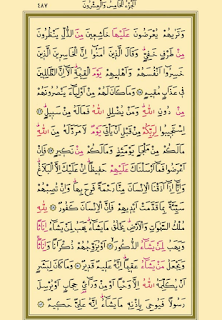 الجزء الخامس والعشرون ٤٨٧
وَتَرٰيهُمْ يُعْرَضُونَ عَلَيْهَا خَاشِعِينَ مِنَ الذُّلِّ يَنْظُرُونَ
مِنْ طَرْفٍ خَفِيٍّ وَقَالَ الَّذِينَ اٰمَنُٓوا اِنَّ الْخَاسِرِينَ الَّذِينَ
خَسِرُٓوا اَنْفُسَهُمْ وَاَهْلِيهِمْ يَوْمَ الْقِيٰمَةِ اَلَٓا اِنَّ الظَّالِمِينَ
فِي عَذَابٍ مُقِيمٍ ۞ وَمَا كَانَ لَهُمْ مِنْ اَوْلِيَٓاءَ يَنْصُرُونَهُمْ
مِنْ دُونِ اللّٰهِ وَمَنْ يُضْلِلِ اللّٰهُ فَمَا لَهُ مِنْ سَبِيلٍ ۞
اِسْتَجِيبُوا لِرَبِّكُمْ مِنْ قَبْلِ اَنْ يَأْتِيَ يَوْمٌ لَا مَرَدَّ لَهُ مِنَ اللّٰهِ
مَا لَكُمْ مِنْ مَلْجَأٍ يَوْمَئِذٍ وَمَا لَكُمْ مِنْ نَكِيرٍ ۞ فَاِنْ
اَعْرَضُوا فَمَٓا اَرْسَلْنَاكَ عَلَيْهِمْ حَفِيظًا اِنْ عَلَيْكَ اِلَّا الْبَلَاغُ
وَاِنَّٓا اِذَٓا اَذَقْنَا الْاِنْسَانَ مِنَّا رَحْمَةً فَرِحَ بِهَا وَاِنْ تُصِبْهُمْ
سَيِّئَةٌ بِمَا قَدَّمَتْ اَيْدِيهِمْ فَاِنَّ الْاِنْسَانَ كَفُورٌ ۞ لِلّٰهِ
مُلْكُ السَّمٰوَاتِ وَالْاَرْضِ يَخْلُقُ مَا يَشَٓاءُ يَهَبُ لِمَنْ يَشَٓاءُ اِنَاثًا
وَيَهَبُ لِمَنْ يَشَٓاءُ الذُّكُورَ ۞ اَوْ يُزَوِّجُهُمْ ذُكْرَانًا وَاِنَاثًا
وَيَجْعَلُ مَنْ يَشَٓاءُ عَقِيمًا اِنَّهُ عَلِيمٌ قَدِيرٌ ۞ وَمَا كَانَ لِبَشَرٍ
اَنْ يُكَلِّمَهُ اللّٰهُ اِلَّا وَحْيًا اَوْ مِنْ وَرَٓائِ حِجَابٍ اَوْ يُرْسِلَ
رَسُولًا فَيُوحِيَ بِاِذْنِهِ مَا يَشَٓاءُ اِنَّهُ عَلِيٌّ حَكِيمٌ ۞